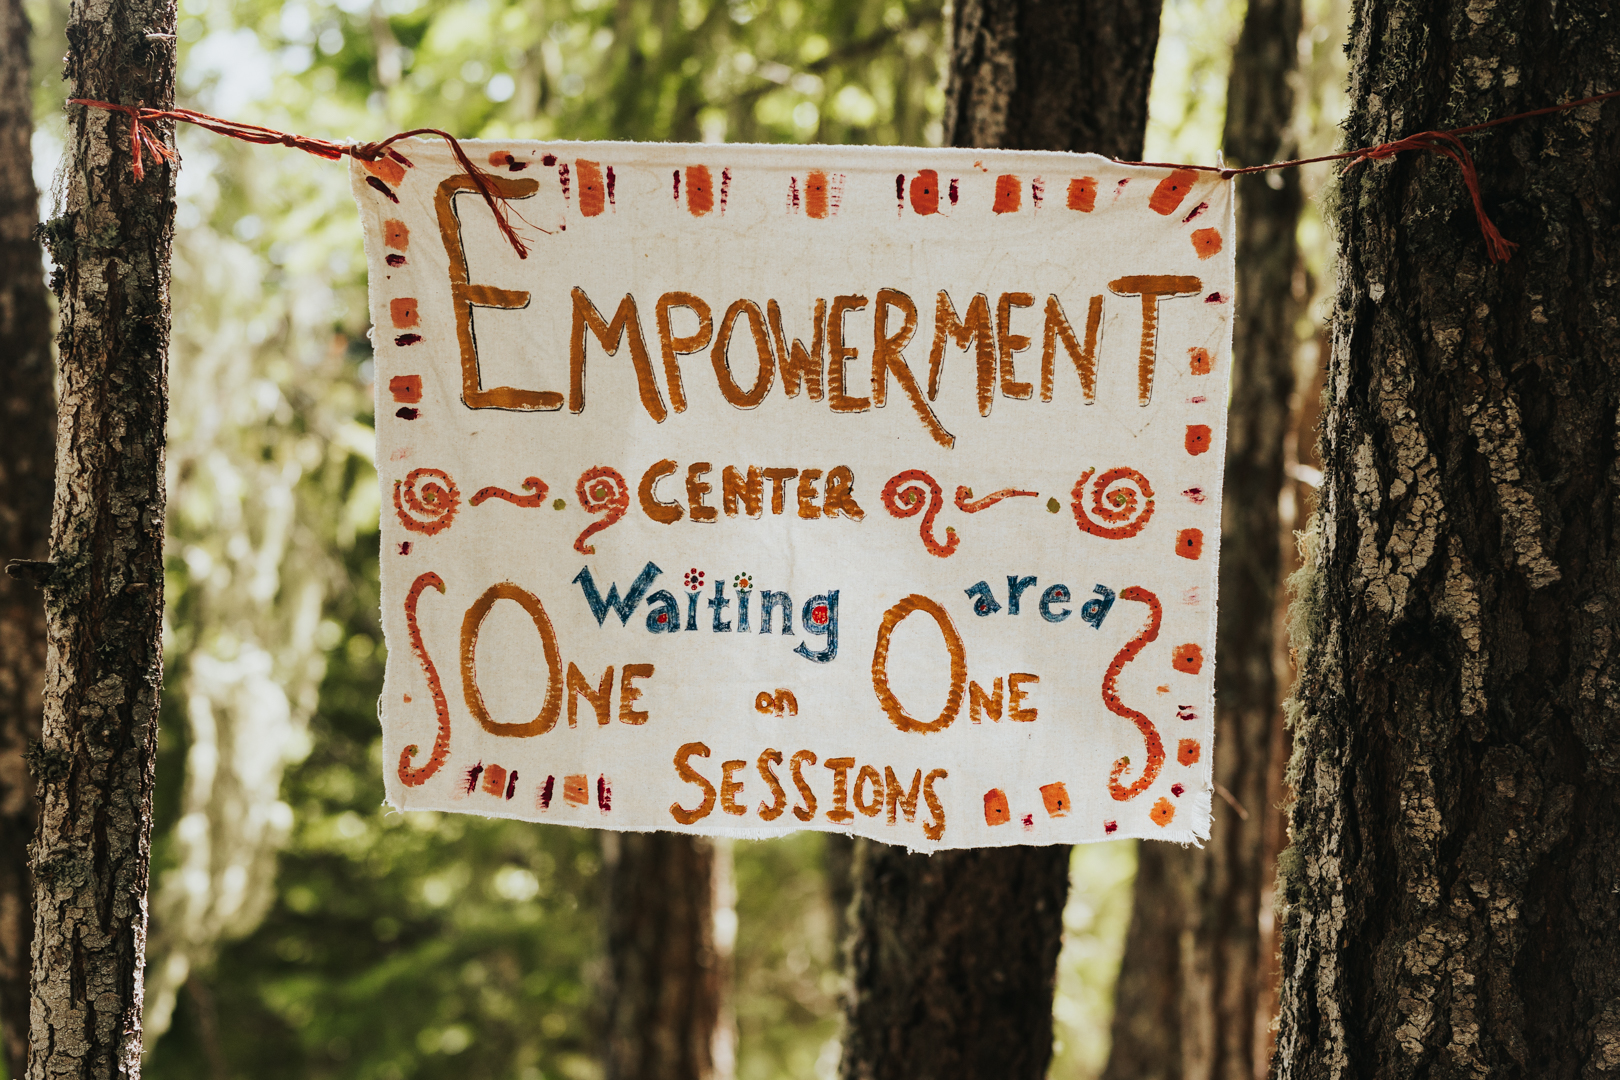 EMPOWERMENT
CENTER
Waiting area
ONE on ONE
SESSIONS